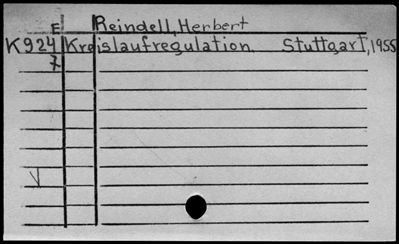 E Reindell, Herbert
K924 Kreislaufregulation. Stuttgart, 1955
7